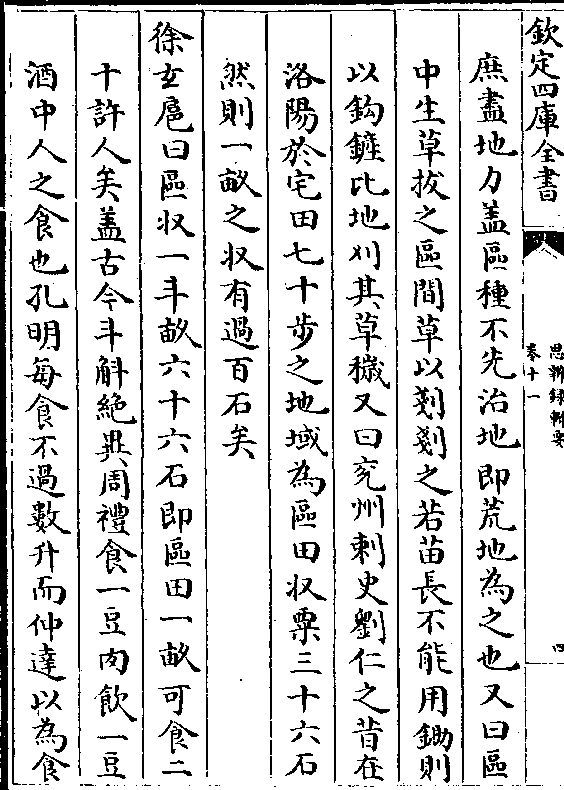 欽定四庫全書
思辨録輯要
卷十一
四
庶盡地力蓋區種不先治地即荒地為之也又曰區
中生草拔之區間草以剗剗之若苗長不能用鋤則
以鈎鎌比地刈其草穢又曰兖州刺史劉仁之昔在
洛陽於宅田七十步之地域為區田收粟三十六石
然則一畝之收有過百石矣
徐玄扈曰區収一斗畝六十六石即區田一畝可食二
十許人矣蓋古今斗斛絶異周禮食一豆肉飲一豆
酒中人之食也孔明每食不過數升而仲達以為食